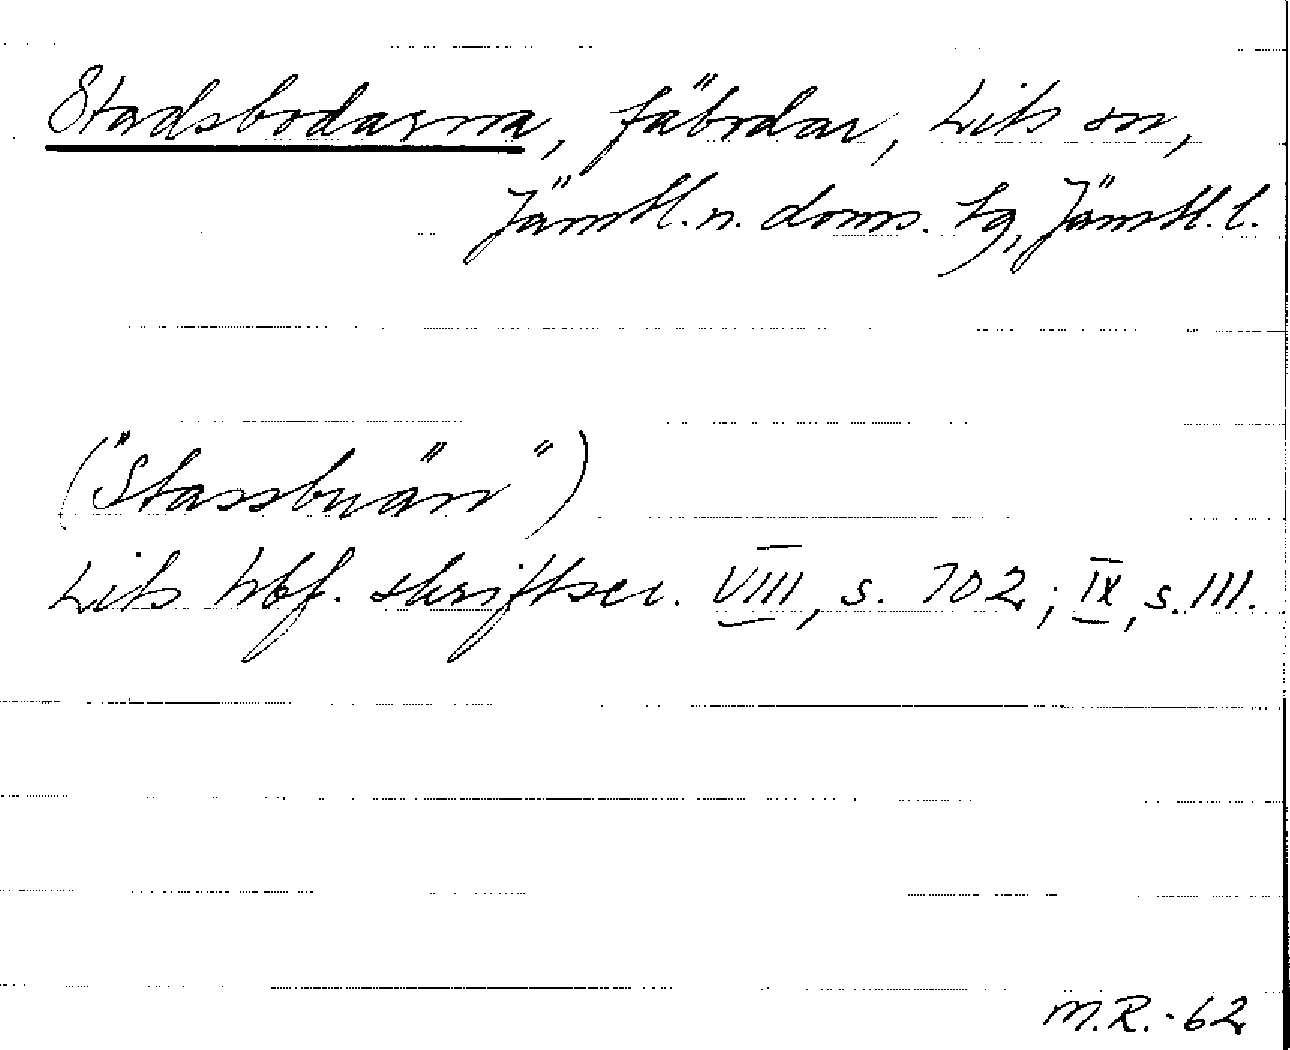 Stadsbodarna, fäbodar, Lits sn,
Jämtl. n. doms. tg, Jämtl. l.
("Stassbuän")
Lits hbf. skriftser. VIII, s. 702; IX, s. 111.
M.R.-62